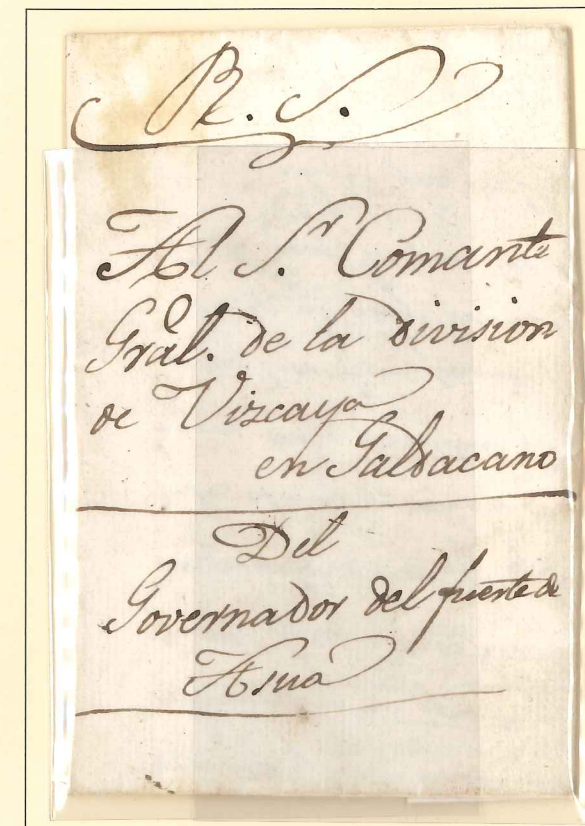 R. S.
Al S.r Comante
Gral. de la division
de Vizcaya
en Galdacano
Del
Governador del fuerte de
Asua